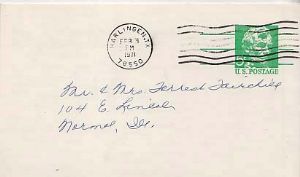 HARLINGEN, TX
FEB 3
PM
1971
78550
U.S. POSTAGE
Mr. & Mrs. Forrest Fairchild
104 E. Lincoln
Normal, Ill.